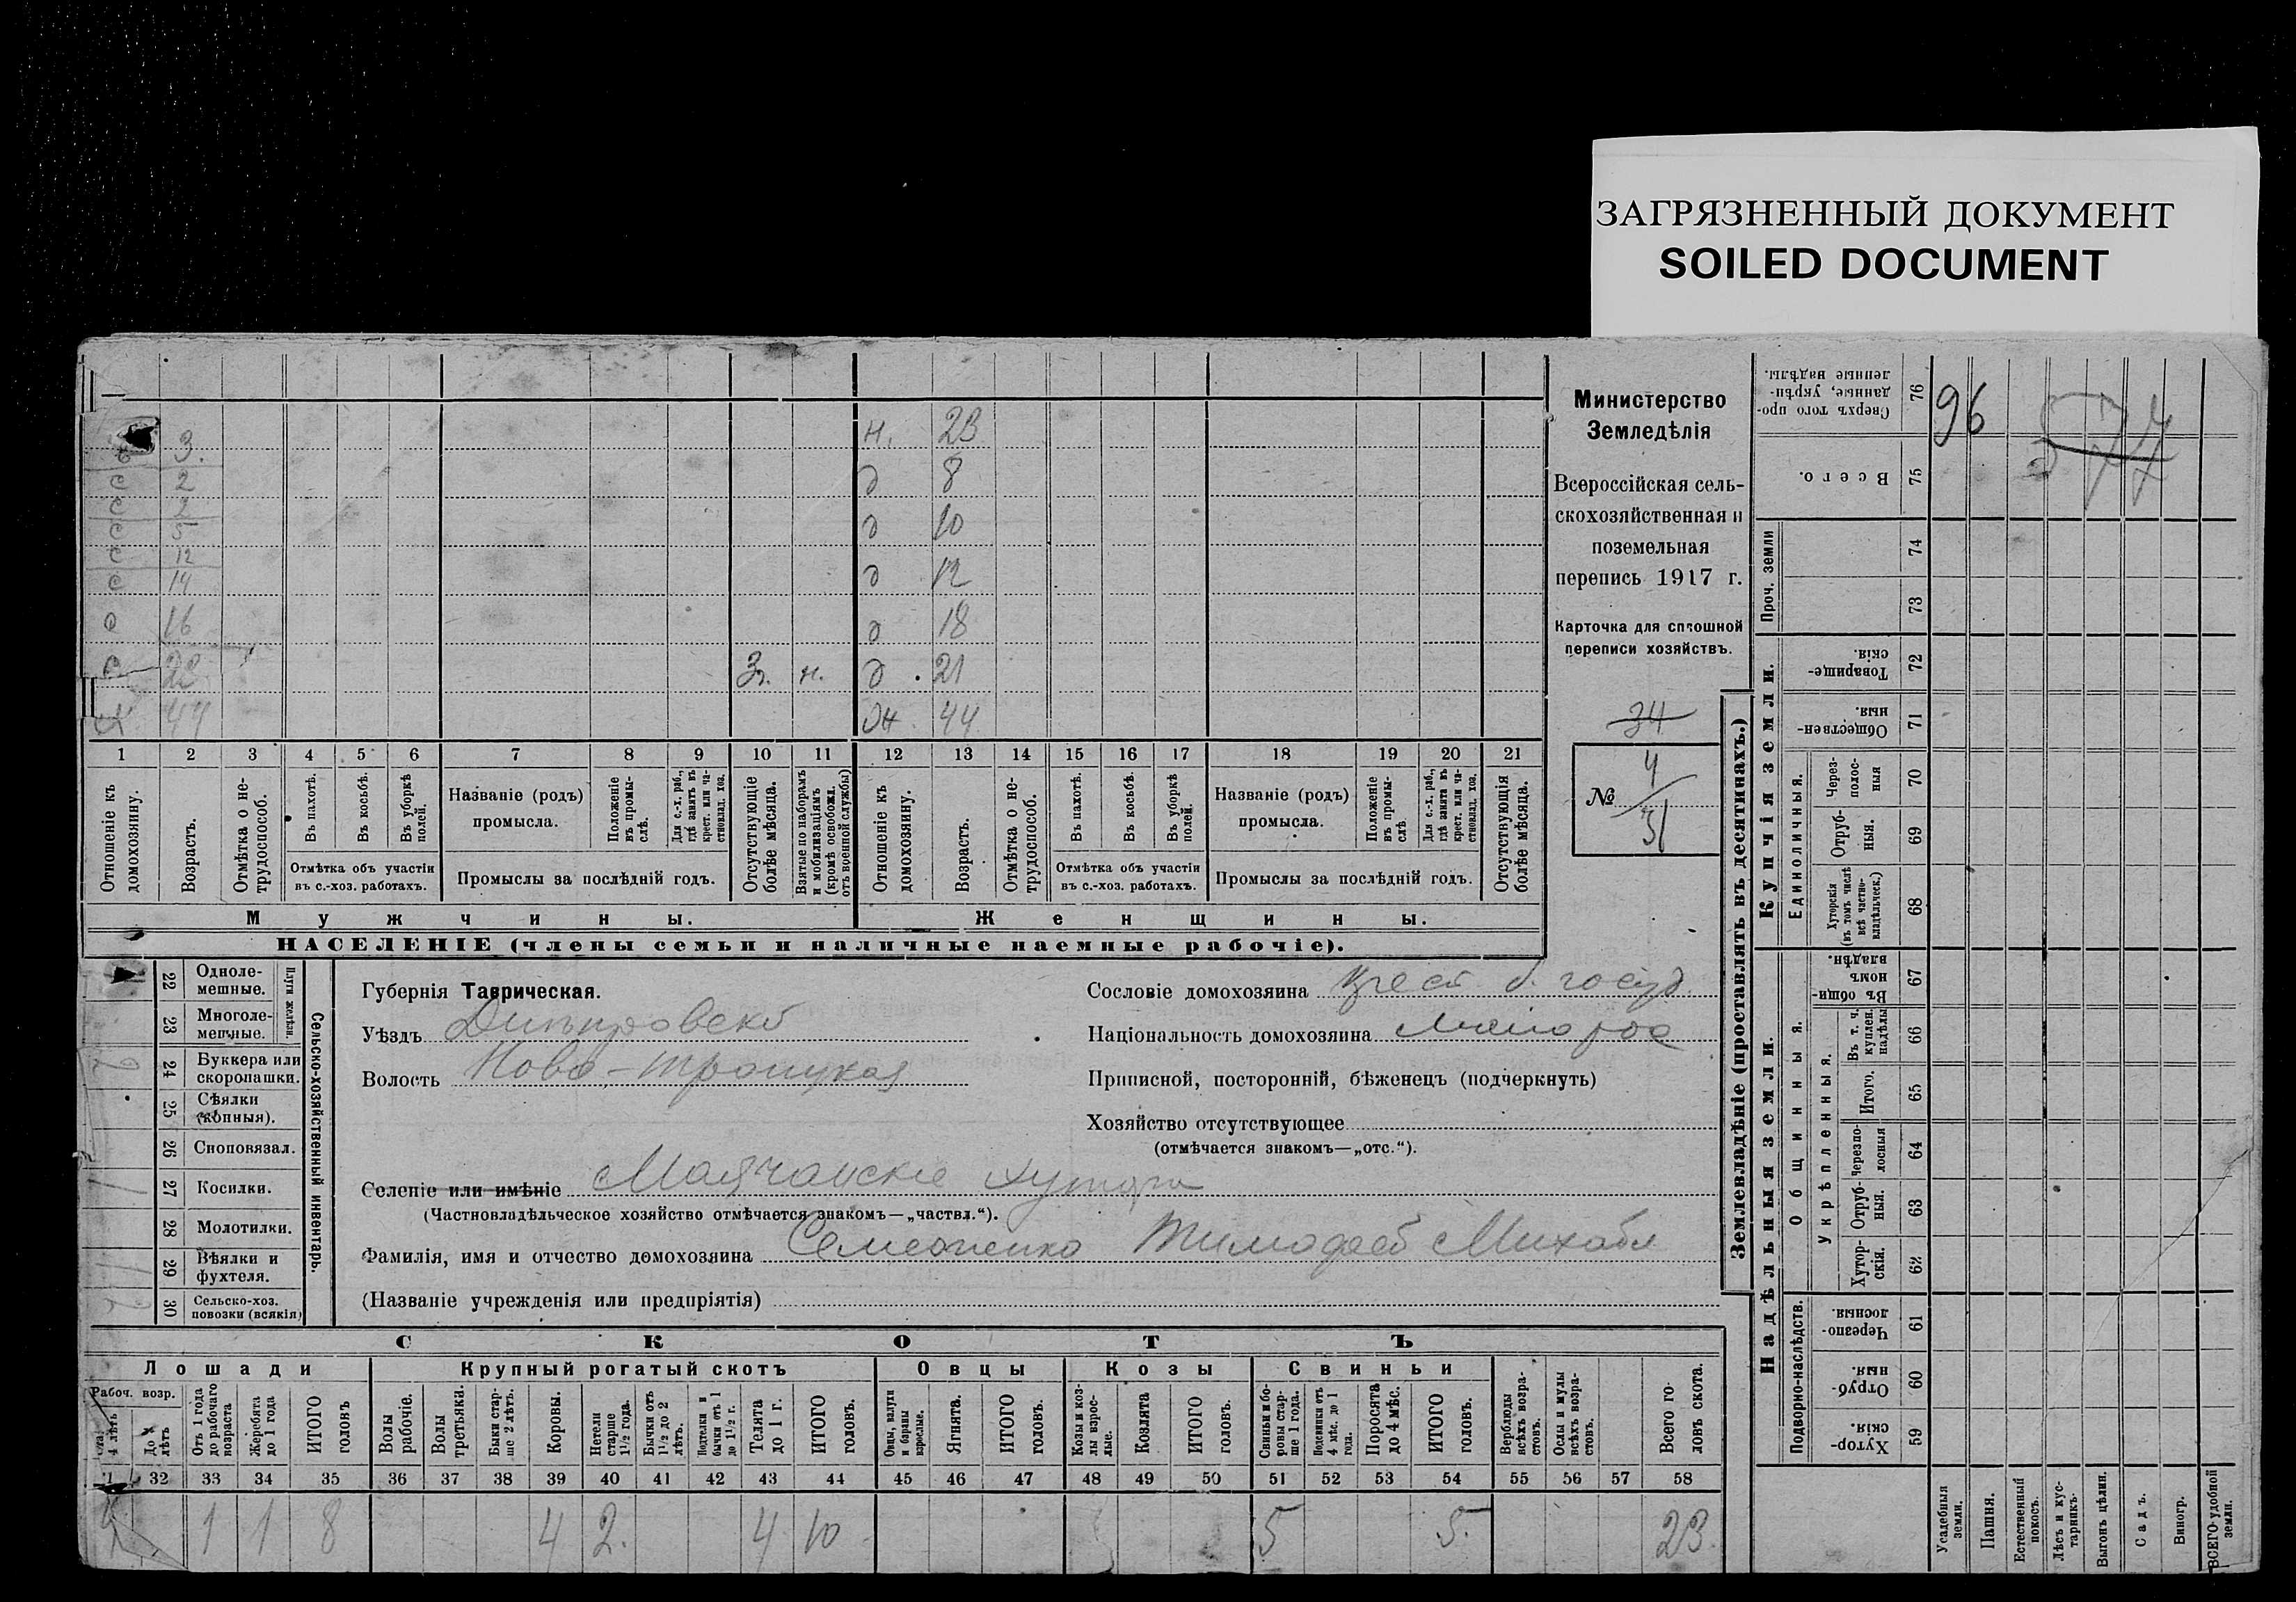 ЗАГРЯЗНЕННЫЙ ДОКУМЕНТ
SOILED DOCUMENT
Министерство
Земледѣлія
Всероссійская сель-
скохозяйственная и
поземельная
перепись 1917 г.
Карточка для сплошной
переписи хозяйствъ.
34
№ 4
31
3. н. 23
с 2 д 8
с 2
с 5 д 10
с 12
с 14 д 12
16 д 18
с 22 н. д 21
44 44
1 2 3 4 5 6 7 8 9 10 11 12 13 14 15 16 17 18 19 20 21
Отношеніе къ домохозяину.
Возрастъ.
Отмѣтка о не-трудоспособ.
Въ пахотѣ.
Въ косьбѣ.
Въ уборкѣ полей.
Отмѣтка объ участіи
въ с.-хоз. работахъ.
Названіе (родъ)
промысла.
Положеніе въ промы-слѣ.
Для с.-х. раб., гдѣ занятъ въ крест. или ча-стновлад. хоз.
Промыслы за послѣдній годъ.
Отсутствующіе болѣе мѣсяца.
Взятые по наборамъ и мобилизаціямъ (кромѣ освобожд. отъ военной службы)
Отношеніе къ домохозяину.
Возрастъ.
Отмѣтка о не-трудоспособ.
Въ пахотѣ.
Въ косьбѣ.
Въ уборкѣ полей.
Отмѣтка объ участіи
въ с.-хоз. работахъ.
Названіе (родъ)
промысла.
Положеніе въ промы-слѣ.
Для с.-х. раб., гдѣ занята въ крест. или ча-стновлад. хоз.
Промыслы за послѣдній годъ.
Отсутствующія болѣе мѣсяца.
Мужчины. Женщины.
НАСЕЛЕНІЕ (члены семьи и наличные наемные рабочіе).
Сельско-хозяйственный инвентарь.
Плуги желѣзн.
22 Одноле-мешные.
23 Многоле-мешные.
24 Буккера или скоропашки.
25 Сѣялки (конныя).
26 Сноповязал.
27 Косилки.
28 Молотилки.
29 Вѣялки и фухтеля.
30 Сельско-хоз. повозки (всякія)
Губернія Таврическая.
Уѣздъ Днѣпровскій
Волость Ново-Троицкая
Сословіе домохозяина крест. б. госуд.
Національность домохозяина малорос
Приписной, посторонній, бѣженецъ (подчеркнуть)
Хозяйство отсутствующее
(отмѣчается знакомъ—„отс.“).
Селеніе или имѣніе Маячанскіе хутора
(Частновладѣльческое хозяйство отмѣчается знакомъ—„частвл.“).
Фамилія, имя и отчество домохозяина Семененко Тимофей Михайл
(Названіе учрежденія или предпріятія)
СКОТЪ
Лошади Крупный рогатый скотъ Овцы Козы Свиньи
Рабоч. возр.
4 лѣтъ
До 4 лѣтъ
Отъ 1 года до рабочаго возраста
Жеребята до 1 года
ИТОГО головъ
Волы рабочіе.
Волы третьяки.
Быки стар-ше 2 лѣтъ.
Коровы.
Нетели старше 1½ года.
Бычки отъ 1½ до 2 лѣтъ.
Подтелки и бычки отъ 1 до 1½ г.
Телята до 1 г.
ИТОГО головъ.
Овцы, валухи и бараны взрослые.
Ягнята.
ИТОГО головъ.
Козы и коз-лы взрос-лые.
Козлята
ИТОГО головъ.
Свиньи и бо-ровы стар-ше 1 года.
Подсвинки отъ 4 мѣс. до 1 года.
Поросята до 4 мѣс.
ИТОГО головъ.
Верблюды всѣхъ возра-стовъ.
Ослы и мулы всѣхъ возра-стовъ.
Всего го-ловъ скота.
32 33 34 35 36 37 38 39 40 41 42 43 44 45 46 47 48 49 50 51 52 53 54 55 56 57 58
1 1 8 4 2. 4 10 5 5. 23
Землевладѣніе (проставлять въ десятинахъ.)
Надѣльныя земли. Купчія земли. Проч. земли
Подворно-наслѣдств. Общинныя. Укрѣпленныя. Единоличныя.
59 Хутор-скія.
60 Отруб-ныя.
61 Черезпо-лосныя.
62 Хутор-скія.
63 Отруб-ныя.
64 Черезпо-лосныя
65 Итого.
66 Въ т. ч. куплен. надѣлы
67 Въ общи-номъ владѣн.
68 Хуторскія (въ томъ числѣ всѣ частно-владѣльческ.)
69 Отруб-ныя.
70 Через-полос-ныя
71 Обществен-ныя.
72 Товарище-скія.
73
74
75 Всего.
76 Сверхъ того про-данные, укрѣп-ленные надѣлы.
96 577
Усадебныя земли.
Пашня.
Естественный покосъ.
Лѣсъ и кус-тарникъ.
Выгонъ цѣлин.
Садъ.
Виногр.
ВСЕГО удобной земли.